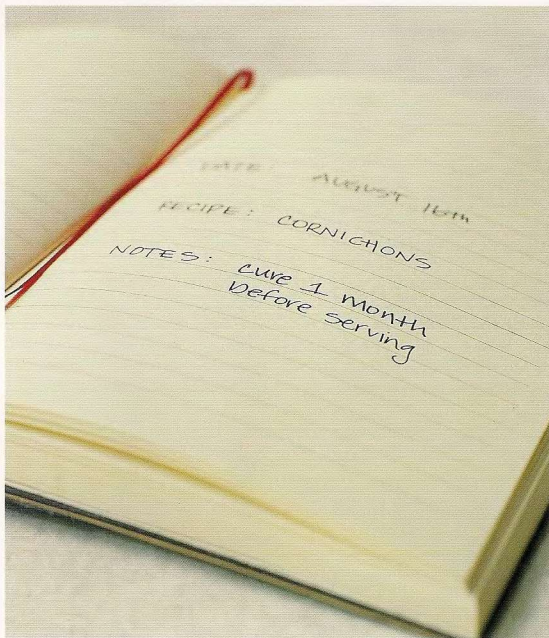 DATE: AUGUST 16th
RECIPE: CORNICHONS
NOTES: cure 1 month
before serving